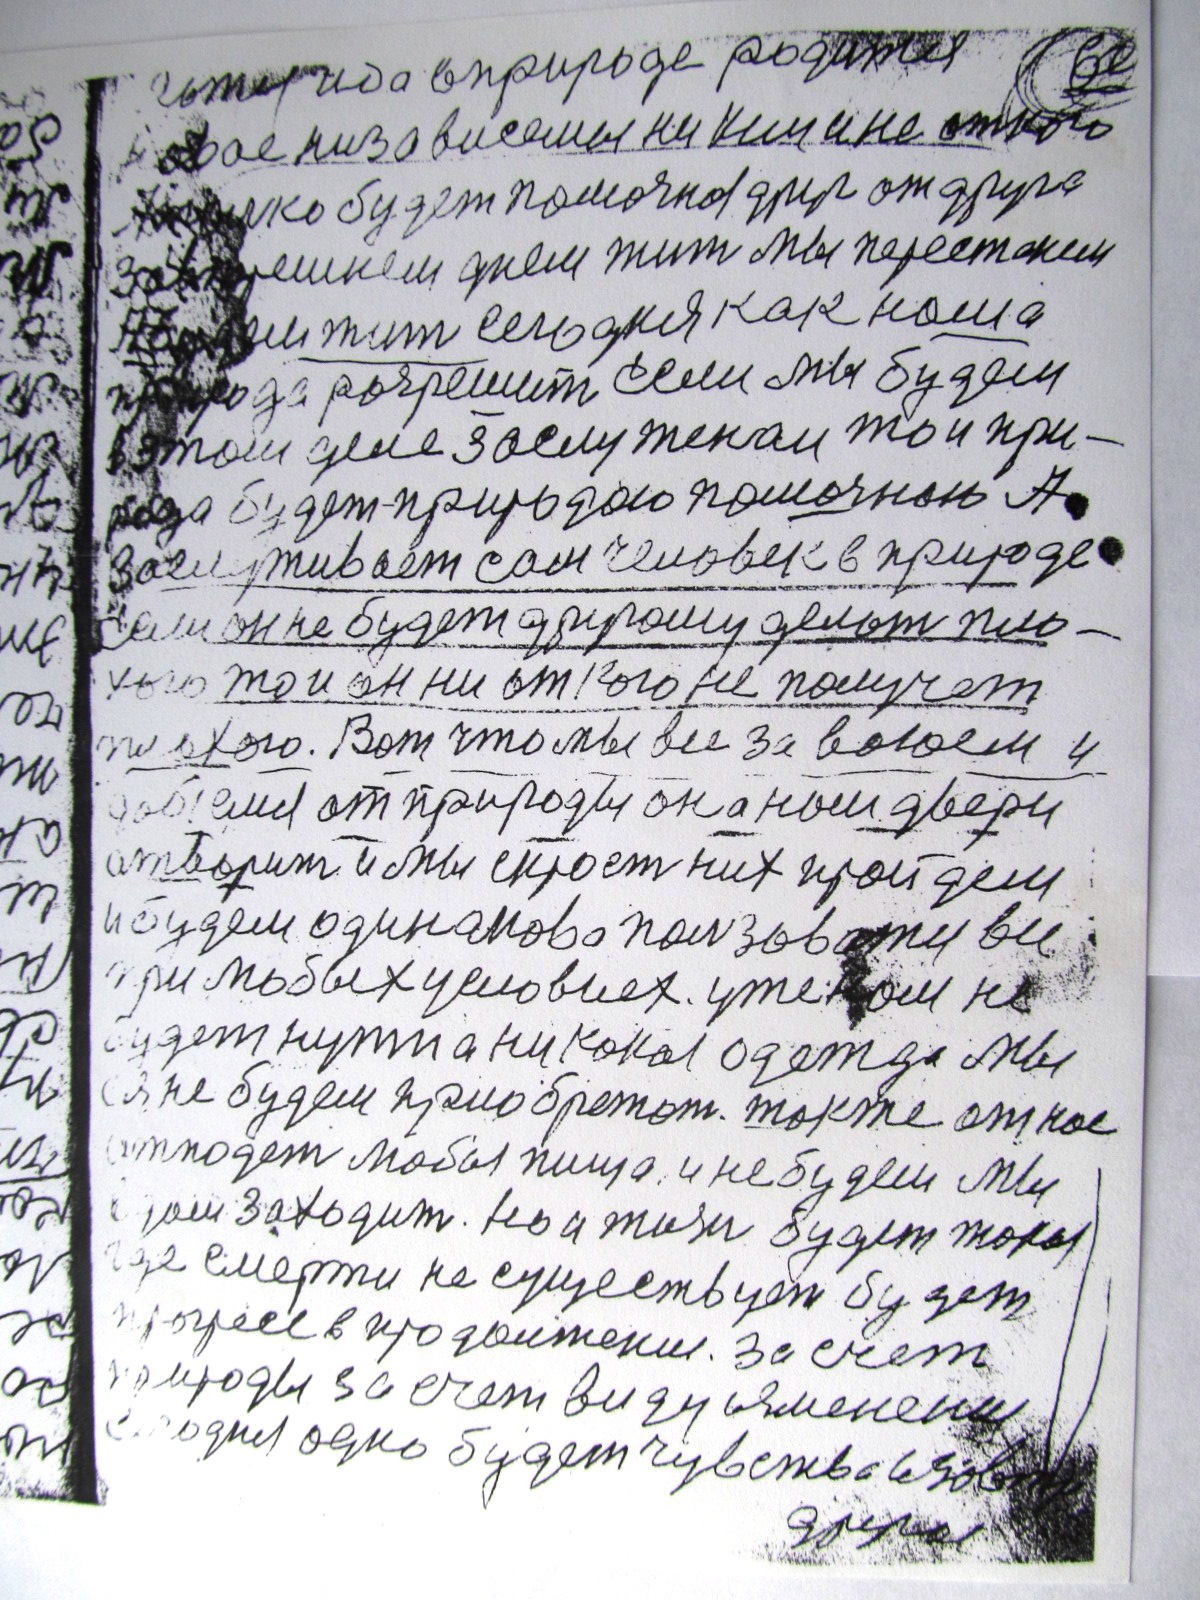 иба в природе родится
новое низависемыя ни ким и не от кого
Только будет помочная друг от друга
завтрешнем днем жит мы перестанем
Начнем жит сегодня как наша
природа разрешит Если мы будем
в этом деле заслуженам то и при-
рода будет природою помочною А
заслуживает сам человек в природе
Если он не будет другому делат пло-
хого то и он ни от кого не получет
плохого. Вот что мы все завоюем и
добемся от природы она нам двери
атворит и мы скрость них пройдем
и будем одинакова ползоватся все
при любых условиех. уже нам не
будет нужна никакая одежда мы
ея не будем приобретат. также от нас
отподет любая пища. и не будем мы
в дом заходит. Но и жизн будет такая
где смерти не существует будет
прогрес в продолжении. за счет
природы за счет видуизменении
Сегодня одно будет чувства а завтра
другое